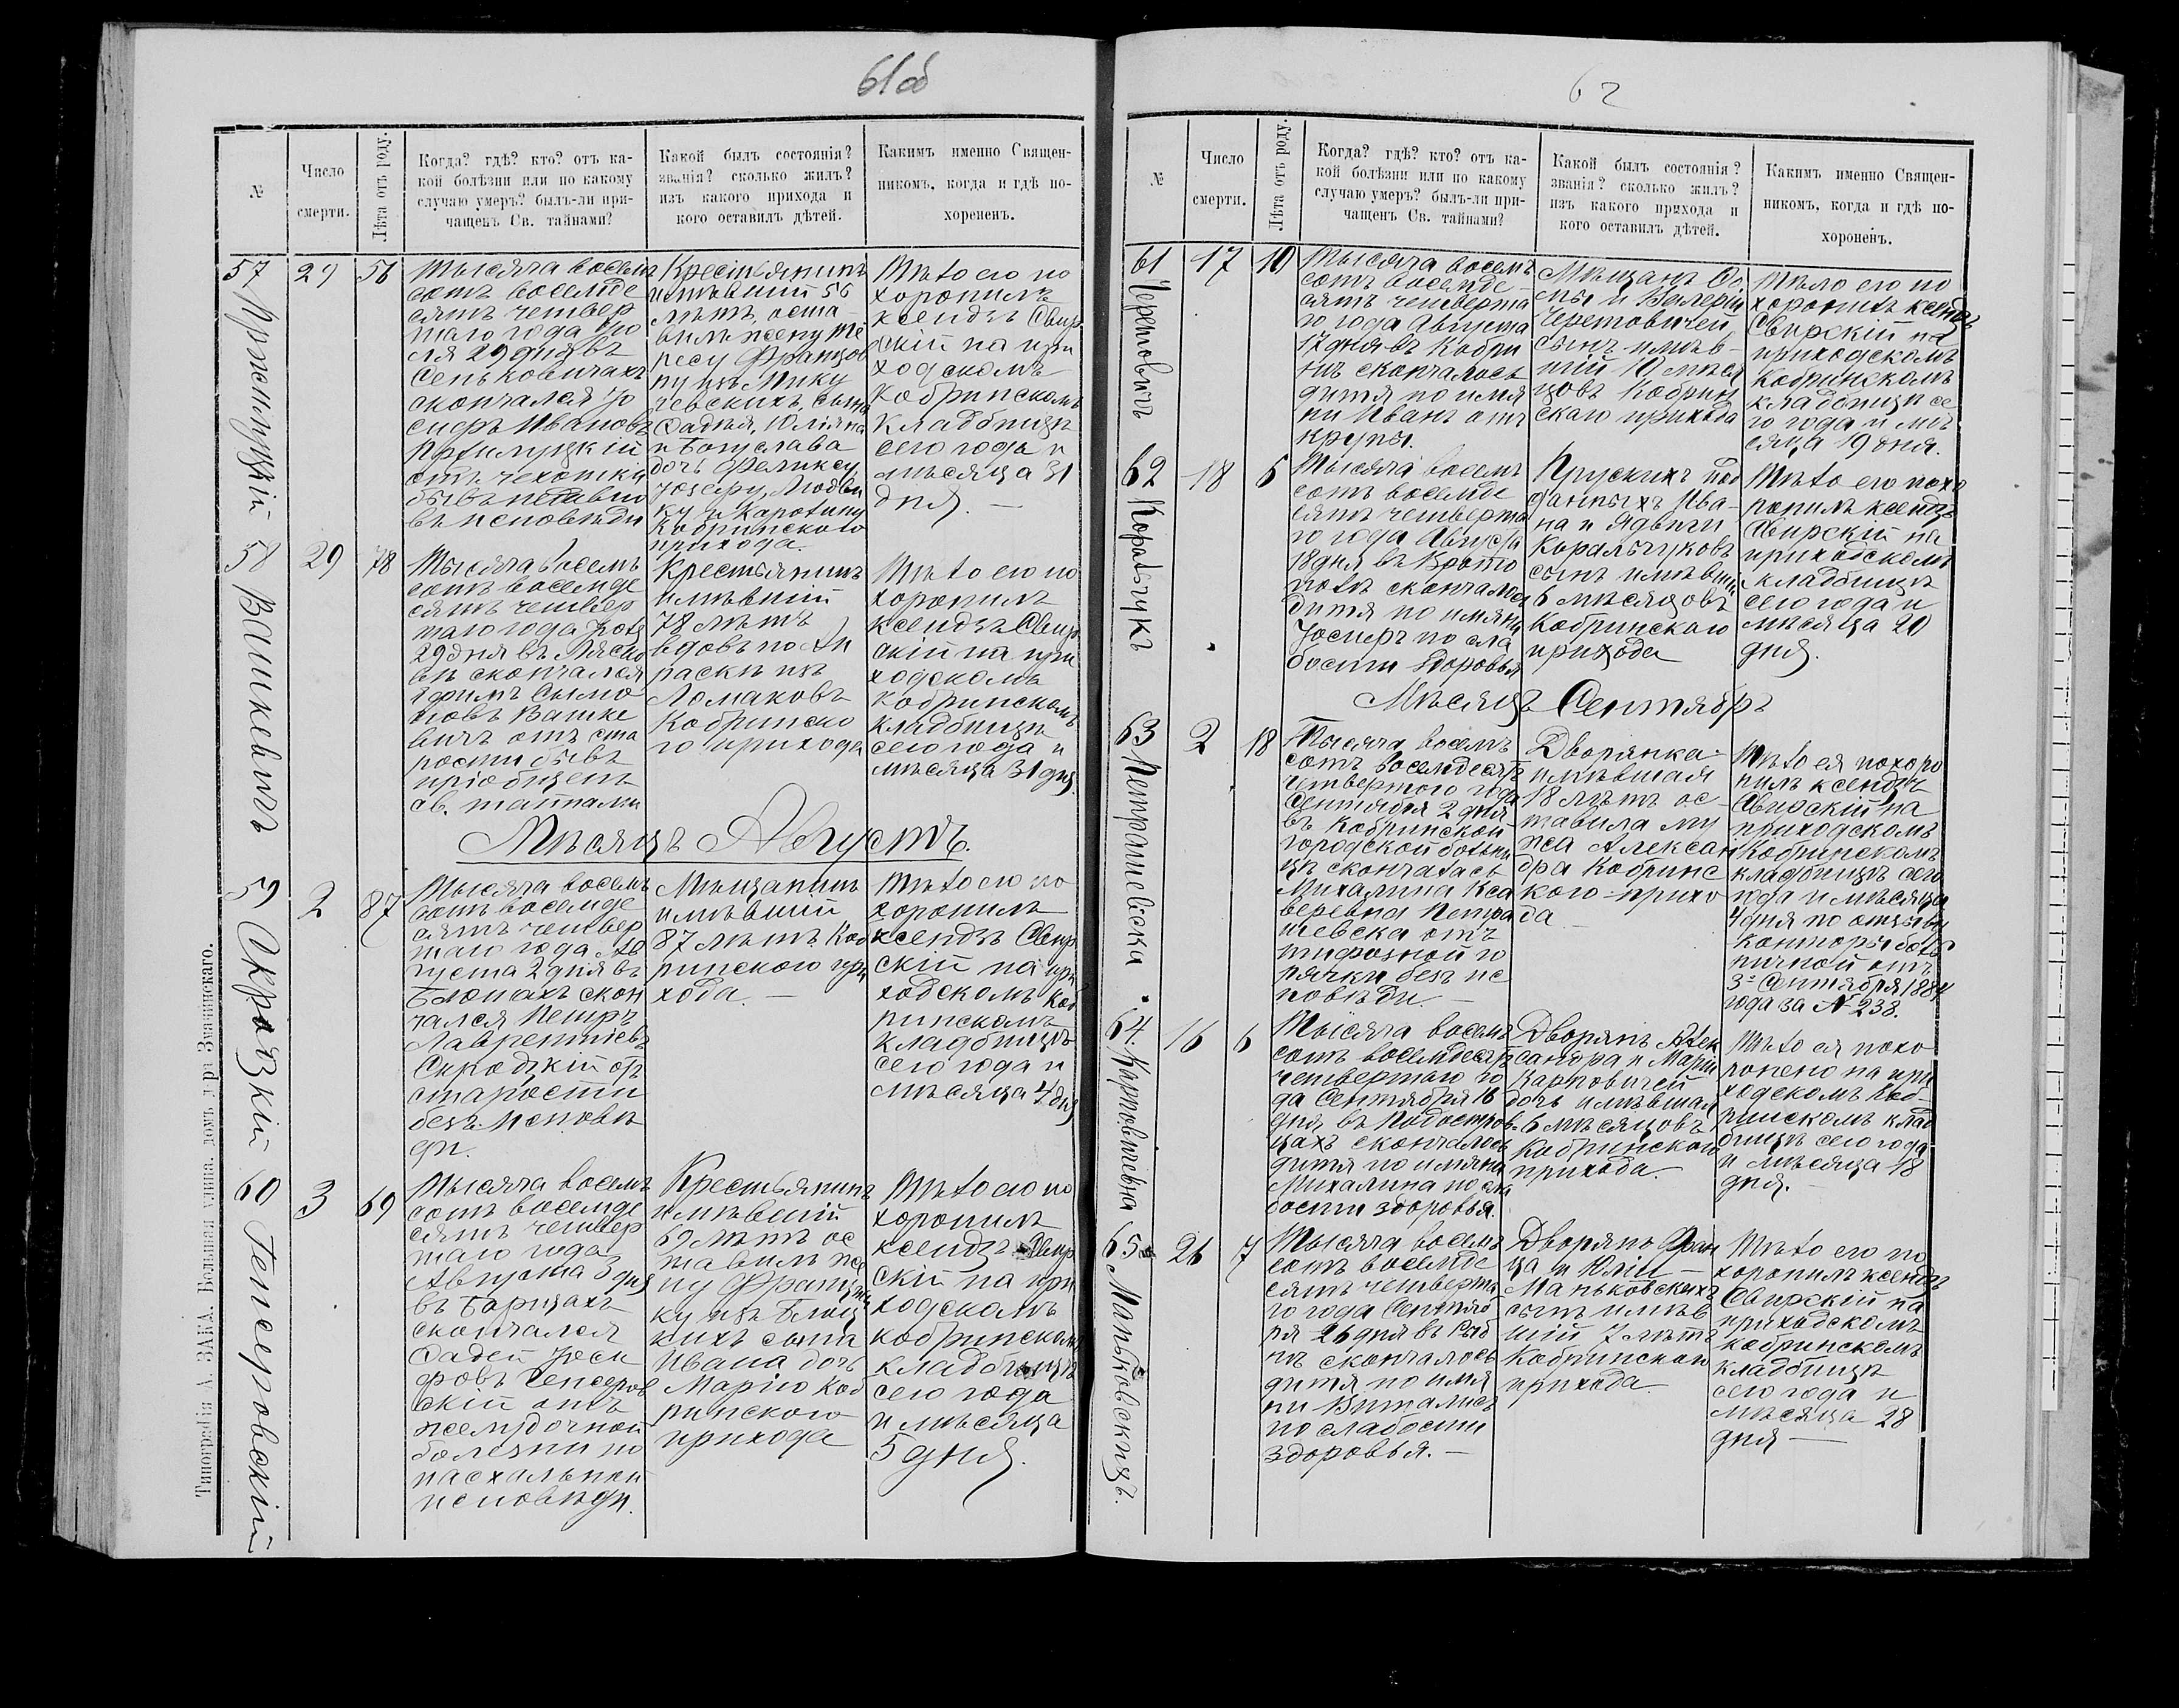 61об
№
Число
смерти.
Лѣта отъ роду.
Когда? гдѣ? кто? отъ ка-
кой болѣзни или по какому
случаю умеръ? былъ-ли при-
чащенъ Св. тайнами?
Какой былъ состоянія?
званія? сколько жилъ?
изъ какого прихода и
кого оставилъ дѣтей.
Какимъ именно Священ-
никомъ, когда и гдѣ по-
хороненъ.
57
29
56
Тысяча восемъ
сотъ восемде
сятъ четвер
таго года Ію
ля 29 дня въ
Сеньковичахъ
скончался Іо
сифъ Ивановъ
Прилуцкій
отъ чехотки
бывъ
въ исповѣди
Крестьянинъ
имѣвшій 56
лѣтъ, оста
вилъ жену Те
ресу Францов
ну изъ Мику
чевскихъ, сына
Фадѣя, Юліяна
и Богуслава
дочь Феликсу
Юзефу, Людви
ку и Каролину
Кобринского
прихода.
Тѣло его по
хоронилъ
ксендзъ Свир
скій на при
ходскомъ
Кобринскомъ
кладбищѣ
сего года и
мѣсяца 31
дня. —
58 Вашкевичъ
29
78
Тысяча восемъ
сотъ восемде
сятъ четвер
таго года Іюля
29 дня въ Ляско
вѣ скончался
Ефимъ Сымо
новъ Вашке
вичъ отъ ста
рости бывъ
пріобщенъ
св. тайнами
Крестьянинъ
имѣвшій
78 лѣтъ
вдовъ по Ап
раскѣ изъ
Ломаковъ
Кобринско
го прихода
Тѣло его по
хоронилъ
ксендзъ Свир
скій на при
ходскомъ
Кобринскомъ
кладбищѣ
сего года и
мѣсяца 31 дня
Мѣсяцъ Августъ.
59 Скродзкій
2
87
Тысяча восемъ
сотъ восемде
сятъ четвер
таго года Ав
густа 2 дня въ
скон
чался Петръ
Лаврентіевъ
Скродзкій отъ
старости
безъ исповѣ
ди.
Мѣщанинъ
имѣвшій
87 лѣтъ Коб
ринского при
хода. —
Тѣло его по
хоронилъ
ксендзъ Свир
скій на при
ходскомъ Коб
ринскомъ
кладбищѣ
сего года и
мѣсяца 4 дня
60 Генсеровскій
3
69
Тысяча восемъ
сотъ восемде
сятъ четвер
таго года
Августа 3 дня
въ Борщахъ
скончался
Фадей Іоси
фовъ Генсеров
скій отъ
желудочной
болезни по
пасхальной
исповѣди.
Крестьянинъ
имѣвшій
69 лѣтъ ос
тавилъ же
ну Францыш
ку изъ
кихъ сына
Ивана дочь
Марію Коб
ринского
прихода
Тѣло его по
хоронилъ
ксендзъ Свир
скій на при
ходскомъ
кобринскомъ
кладбищѣ
сего года
и мѣсяца
5 дня.
Типографія А. ЗАКА. Вольная улица. домъ д-ра Змачинскаго.
62
№
Число
смерти.
Лѣта отъ роду.
Когда? гдѣ? кто? отъ ка-
кой болѣзни или по какому
случаю умеръ? былъ-ли при-
чащенъ Св. тайнами?
Какой былъ состоянія?
званія? сколько жилъ?
изъ какого прихода и
кого оставилъ дѣтей.
Какимъ именно Священ-
никомъ, когда и гдѣ по-
хороненъ.
61
17
10
Тысяча восемъ
сотъ восемде-
сятъ четверта
го года Августа
17 дня въ Кобри
нѣ скончалось
дитя по имя
ни Иванъ отъ
крупы.
Мѣщанъ Ѳо
мы и Валеріи
Черетовичей
сынъ имѣв-
шій 10 мѣся
цовъ Кобрин
скаго прихода
Тѣло его по
хоронилъ ксендзъ
Свирскій на
приходскомъ
Кобринскомъ
кладбищѣ се
го года и мѣ
сяца 19 дня.
62 Коральчукъ
18
6
Тысяча восемъ
сотъ восемде
сятъ четверта
го года Августа
18 дня въ
скончалось
дитя по имяни
Іосифъ по сла
бости здоровья
Прускихъ под
данныхъ Ива-
на и Ядвиги
Коральчуковъ
сынъ имѣвшій
6 мѣсяцовъ
Кобринскаго
прихода
Тѣло его похо
ронилъ ксендзъ
Свирскій на
приходскомъ
кладбищѣ
сего года и
мѣсяца 20
дня.
Мѣсяцъ Сентябръ
63 Петрашевска
2
18
Тысяча восемъ
сотъ восемдесятъ
четвертого года
Сентября 2 дня
въ Кобринской
городской больни
цѣ скончалась
Михалина Кса
верьевна Петра
шевска отъ
тифозной го
рячки безъ ис
повѣди. —
Дворянка
имѣвшая
18 лѣтъ ос-
тавила му
жа Алексан
дра Кобринс
кого прихо
да
Тѣло ея похоро
нилъ ксендзъ
Свирскій на
приходскомъ
Кобринскомъ
кладбищѣ сего
года и мѣсяца
4 дня по отзыву
конторы боль
ничной отъ
3го Сентября 1884
года за № 238.
64. Карповичевна
16
6
Тысяча восемъ
сотъ восемдесятъ
четвертаго го
да Сентября 16
дня въ Подостров-
цахъ скончалось
дитя по имяни
Михалина по сла
бости здоровья.
Дворянъ Алек
сандра и Маріи
Карповичей
дочь имѣвшая
6 мѣсяцовъ
Кобринского
прихода —
Тѣло ея похо
ронено на при
ходскомъ Коб-
ринскомъ клад
бищѣ сего года
и мѣсяца 18
дня. —
65 Маньковскихъ.
26
7
Тысяча восемъ
сотъ восемде
сятъ четверта
го года Сентяб
ря 26 дня въ
скончалось
дитя по имя
ни Витались
по слабости
здоровья. —
Дворянъ Фран
ца и Юліи —
Маньковскихъ
сынъ имѣв
шій 7 лѣтъ
Кобринского
прихода —
Тѣло его по
хоронилъ ксендзъ
Свирскій на
приходскомъ
кобринскомъ
кладбищѣ
сего года и
мѣсяца 28
дня —